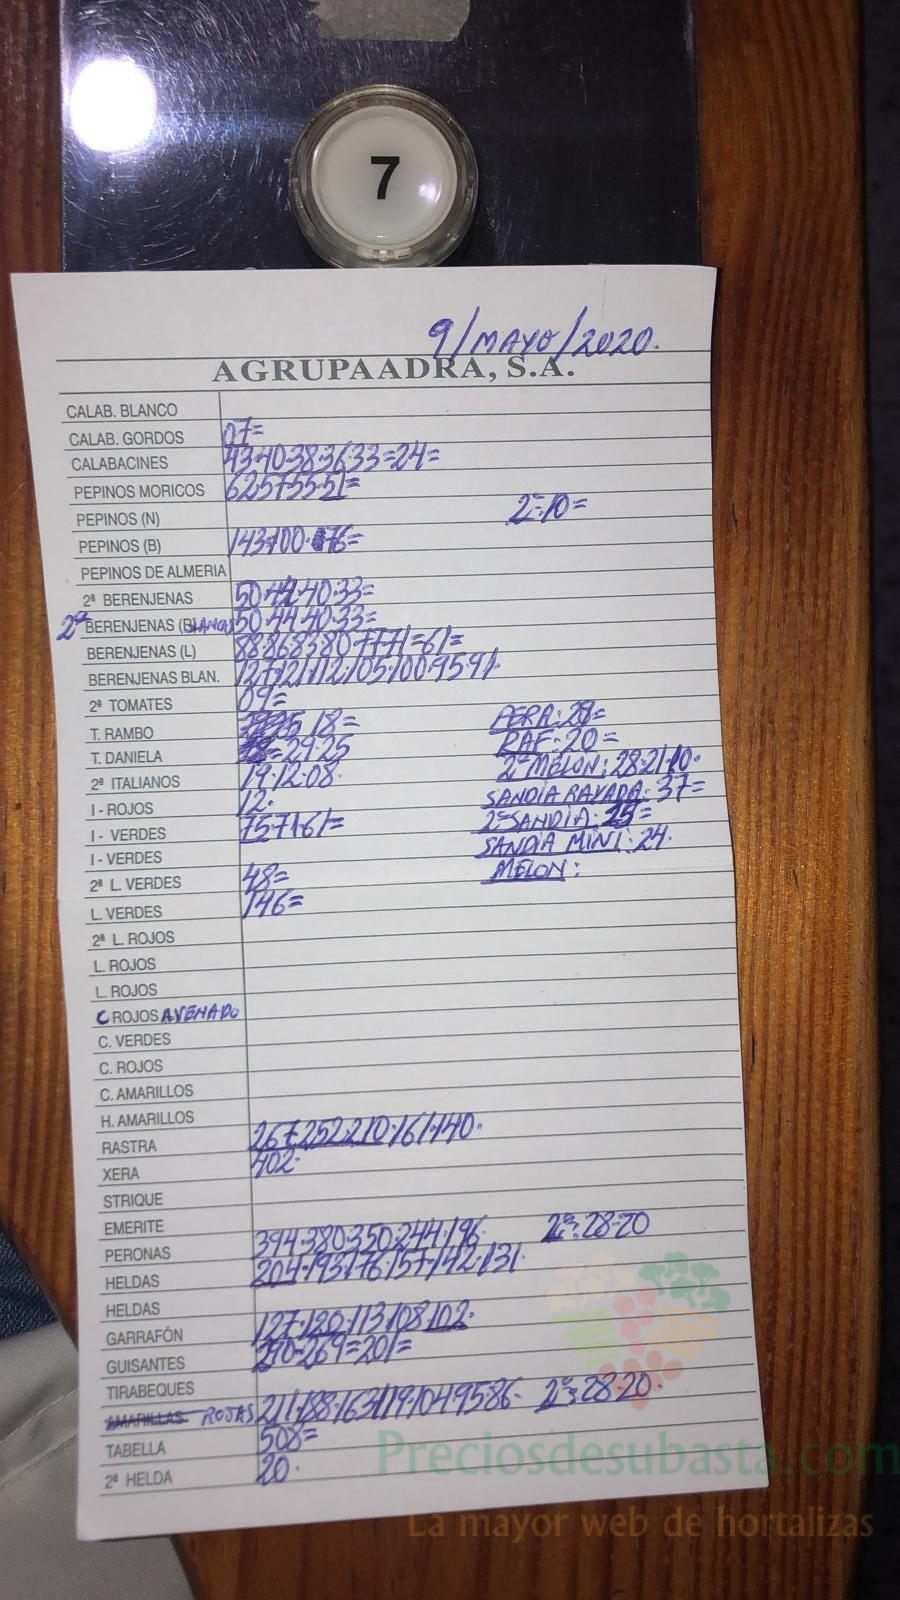 7
9/MAYO/2020.
AGRUPAADRA, S.A.
CALAB. BLANCO
CALAB. GORDOS 07=
CALABACINES 43·40·38·36·33=24=
PEPINOS MORICOS 62·57·55·51=
PEPINOS (N) 2ª:10=
PEPINOS (B) 143·100·76=
PEPINOS DE ALMERIA
2ª BERENJENAS 50·42·40·33=
2ª BERENJENAS (BLANCAS) 50·44·40·33=
BERENJENAS (L) 88·86·83·80·77·71=61=
BERENJENAS BLAN. 127·121·112·105·100·95·91·
2ª TOMATES 09=
T. RAMBO 18= PERA: 28=
T. DANIELA =29·25 RAF: 20=
2ª ITALIANOS 19·12·08· 2ª MELON: 28·21·10·
I - ROJOS 12· SANDIA RAYADA: 37=
I - VERDES 75·71·61= 2ª SANDIA: 25=
I - VERDES SANDIA MINI: 24·
2ª L. VERDES 48= MELON:
L. VERDES 146=
2ª L. ROJOS
L. ROJOS
L. ROJOS
C ROJOS AVENADO
C. VERDES
C. ROJOS
C. AMARILLOS
H. AMARILLOS
RASTRA 267·252·210·161·140·
XERA 402·
STRIQUE
EMERITE
PERONAS 394·380·350·244·196· 2ª: 28·20
HELDAS 204·193·176·157·142·131·
HELDAS
GARRAFÓN 127·120·113·108·102·
GUISANTES 290·269=201=
TIRABEQUES
AMARILLAS ROJAS 211·188·163·119·104·95·86· 2ª: 28·20·
TABELLA 508=
2ª HELDA 20·
Preciosdesubasta.com
La mayor web de hortalizas